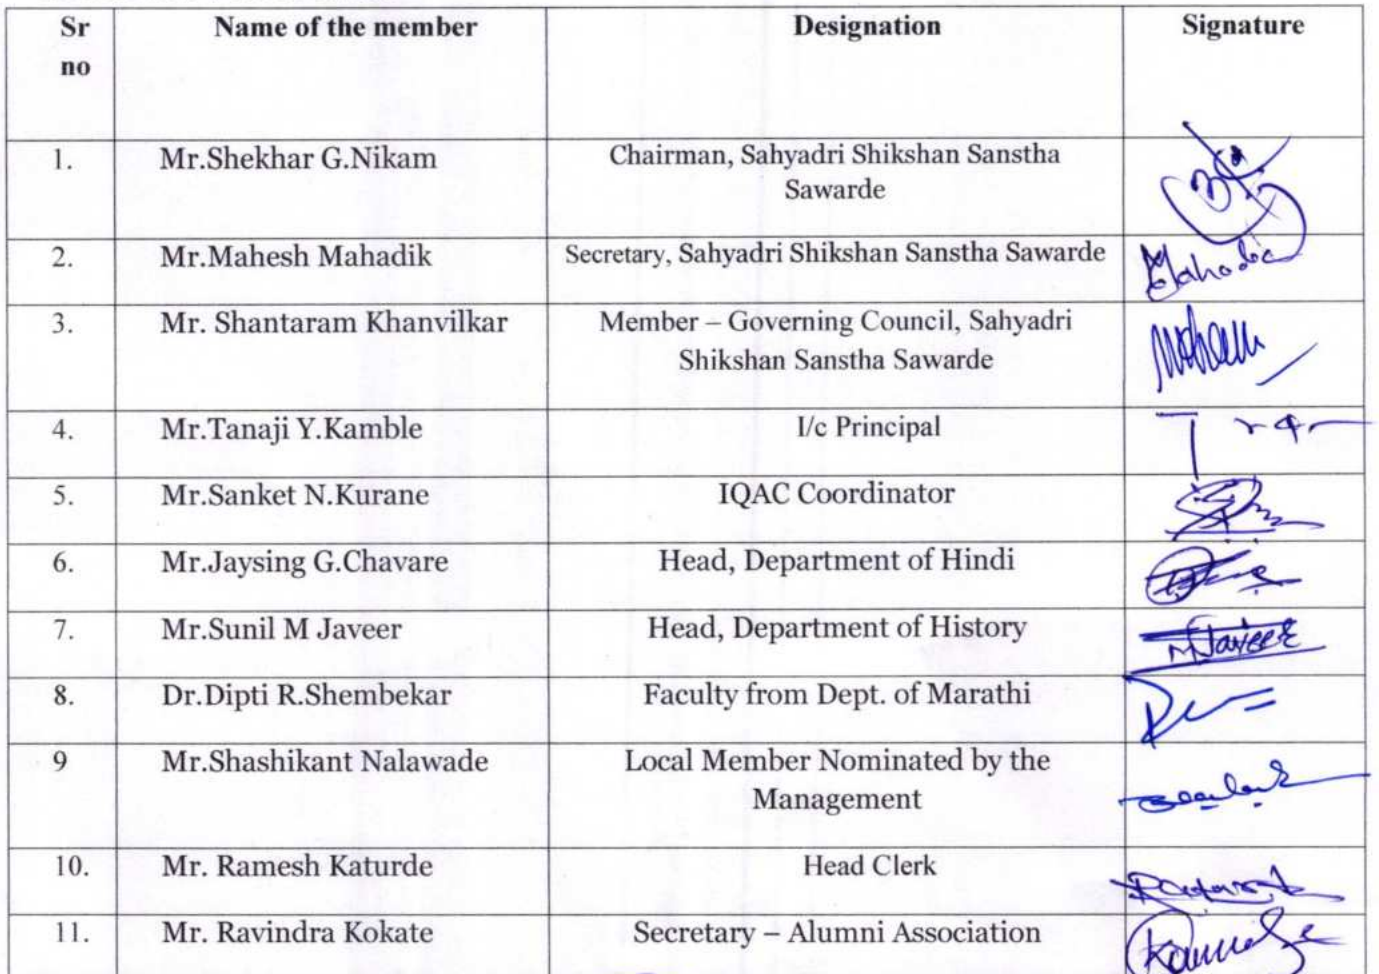 Sr no
Name of the member
Designation
Signature
1.
Mr.Shekhar G.Nikam
Chairman, Sahyadri Shikshan Sanstha
Sawarde
2.
Mr.Mahesh Mahadik
Secretary, Sahyadri Shikshan Sanstha Sawarde
Mahadik
3.
Mr. Shantaram Khanvilkar
Member – Governing Council, Sahyadri
Shikshan Sanstha Sawarde
4.
Mr.Tanaji Y.Kamble
I/c Principal
5.
Mr.Sanket N.Kurane
IQAC Coordinator
6.
Mr.Jaysing G.Chavare
Head, Department of Hindi
7.
Mr.Sunil M Javeer
Head, Department of History
MJaveer
8.
Dr.Dipti R.Shembekar
Faculty from Dept. of Marathi
9
Mr.Shashikant Nalawade
Local Member Nominated by the
Management
10.
Mr. Ramesh Katurde
Head Clerk
11.
Mr. Ravindra Kokate
Secretary – Alumni Association